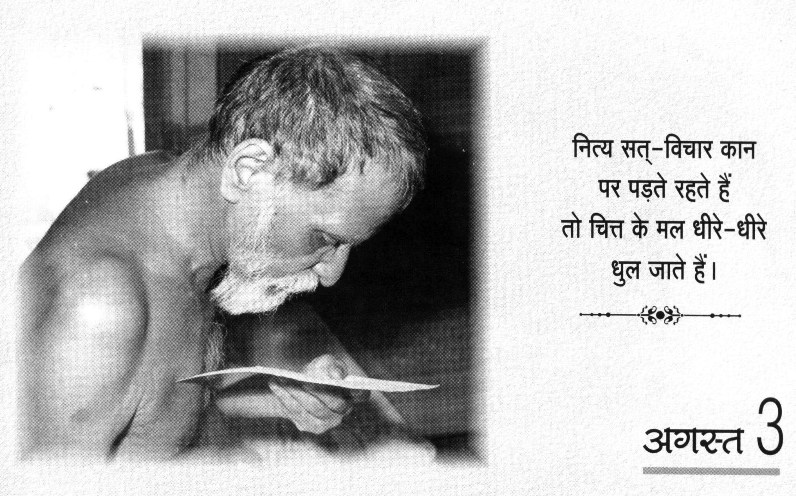 नित्य सत्-विचार कान
पर पड़ते रहते हैं
तो चित्त के मल धीरे-धीरे
धुल जाते हैं।
अगस्त 3